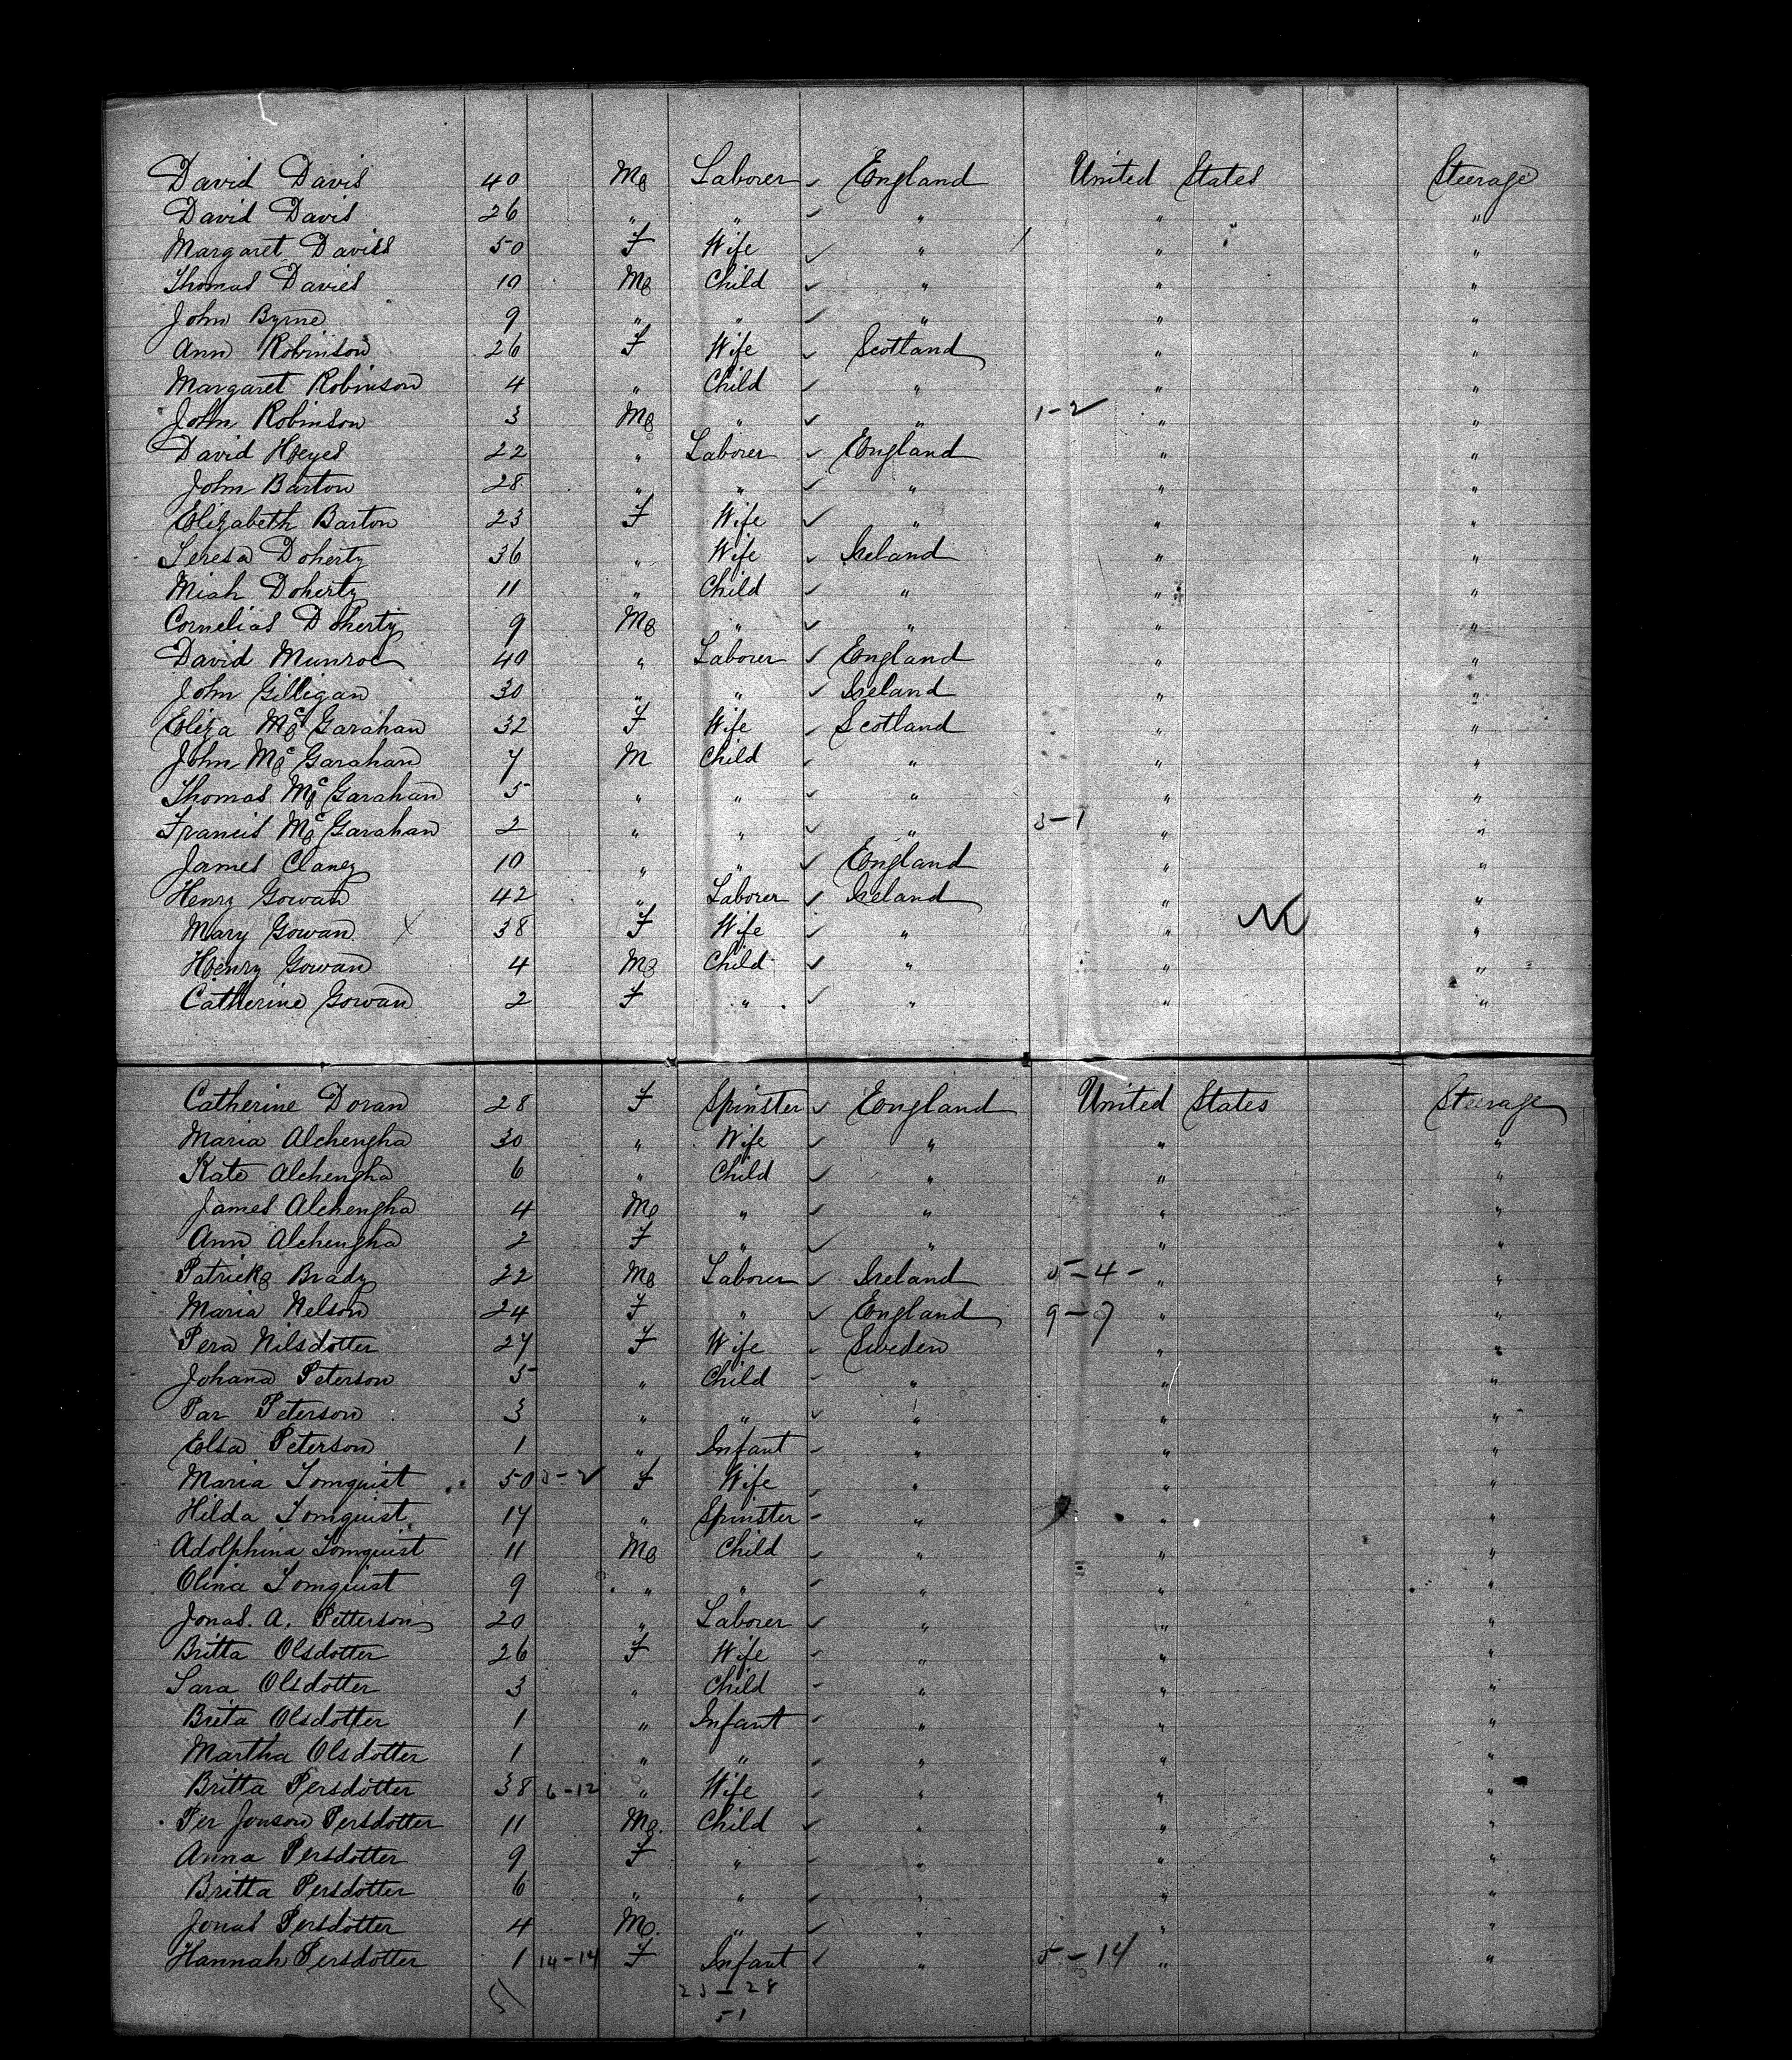 David Davis 40 M Laborer England United States Steerage
David Davis 26 " " " " "
Margaret Davies 50 F Wife " " "
Thomas Davies 10 M Child " " "
John Byrne 9 " " " " "
Ann Robinson 26 F Wife Scotland " "
Margaret Robinson 4 " Child " " "
John Robinson 3 M " " 1-2 " "
David Heyes 22 " Laborer England " "
John Barton 28 " " " " "
Elizabeth Barton 23 F Wife " " "
Teresa Doherty 36 " Wife Ireland " "
Miah Doherty 11 " Child " " "
Cornelias Doherty 9 M " " " "
David Munroe 40 " Laborer England " "
John Gilligan 30 " " Ireland " "
Eliza Mc Garahan 32 F Wife Scotland " "
John Mc Garahan 7 M Child " " "
Thomas Mc Garahan 5 " " " " "
Francis Mc Garahan 2 " " " 3-1 " "
James Claney 10 " " England " "
Henry Gowan 42 " Laborer Ireland " "
Mary Gowan X 38 F Wife " " "
Henry Gowan 4 M Child " " "
Catherine Gowan 2 F " " " "
Catherine Doran 28 F Spinster England United States Steerage
Maria Alchengha 30 " Wife " " "
Kate Alchengha 6 " Child " " "
James Alchengha 4 M " " " "
Ann Alchengha 2 F " " " "
Patrick Brady 22 M Laborer Ireland 5-4- " "
Maria Nelson 24 F " England 9-7 " "
Pera Nilsdotter 27 F Wife Sweden " "
Johana Peterson 5 " Child " " "
Par Peterson 3 " " " " "
Elsa Peterson 1 " Infant " " "
Maria Tornquist 50 3-2 F Wife " " "
Hilda Tornquist 17 " Spinster " " "
Adolphina Tornquist 11 M Child " " "
Olina Tornquist 9 " " " " "
Jonas. A. Petterson 20 " Laborer " " "
Britta Olsdotter 26 F Wife " " "
Sara Olsdotter 3 " Child " " "
Breta Olsdotter 1 " Infant " " "
Martha Olsdotter 1 " " " " "
Britta Persdotter 38 6-12 " Wife " " "
Per Jonson Persdotter 11 M. Child " " "
Anna Persdotter 9 F " " " "
Britta Persdotter 6 " " " " "
Jonas Persdotter 4 M. " " " "
Hannah Persdotter 1 14-14 F Infant " 5-14 " "
51 23-28
51